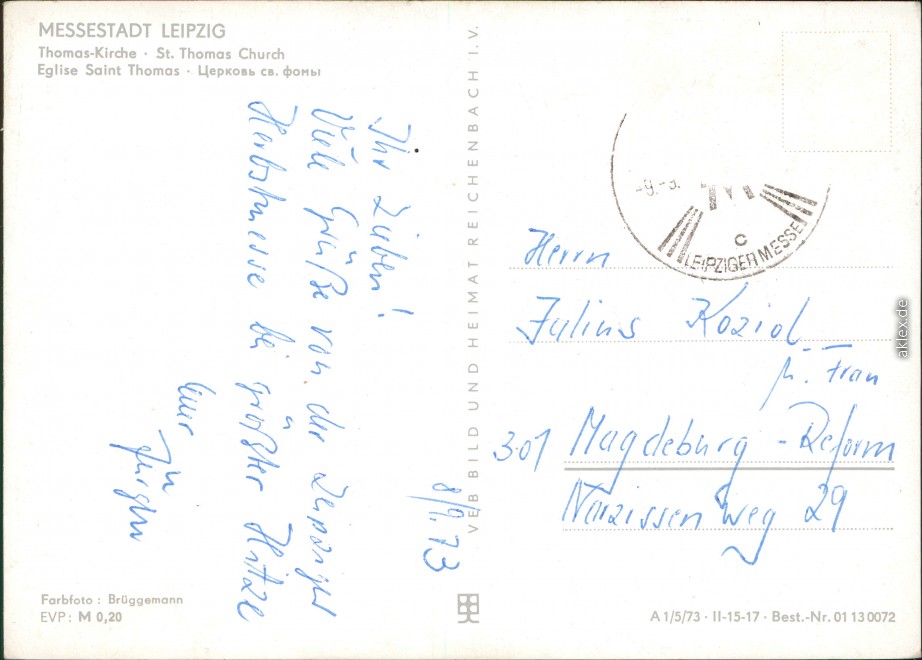 MESSESTADT LEIPZIG
Thomas-Kirche · St. Thomas Church
Eglise Saint Thomas · Церковь св. фомы
8/9.73
Ihr Lieben!
Viele Grüße von der Leipziger
Herbstmesse bei größter Hitze
Euer
Jürgen
VEB BILD UND HEIMAT REICHENBACH I.V.
-9.-3.
C
LEIPZIGER MESSE
Herrn
Julius Koziol
u. Frau
301 Magdeburg-Reform
Narzissenweg 29
Farbfoto: Brüggemann
EVP: M 0,20
A 1/5/73 · II-15-17 · Best.-Nr. 01 13 0072
aklex.de